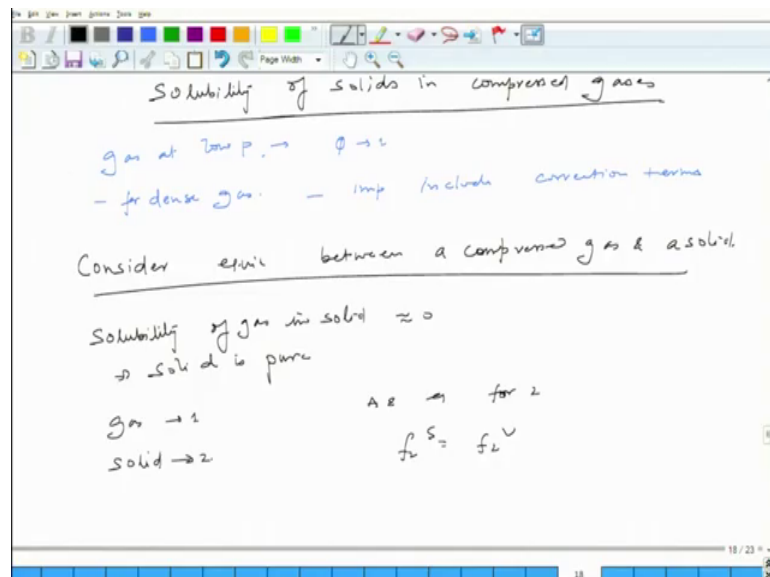 File Edit View Insert Actions Tools Help
B I
Page Width
Solubility of solids in compressed gases
gas at low p. → φ → 1
- for dense gas. - imp include correction terms
Consider between a compressed gas & a solid.
Solubility of gas in solid ≈ 0
⇒ solid is pure
gas → 1
solid → 2
At for 2
f₂ˢ = f₂ᵛ
18 / 23
18